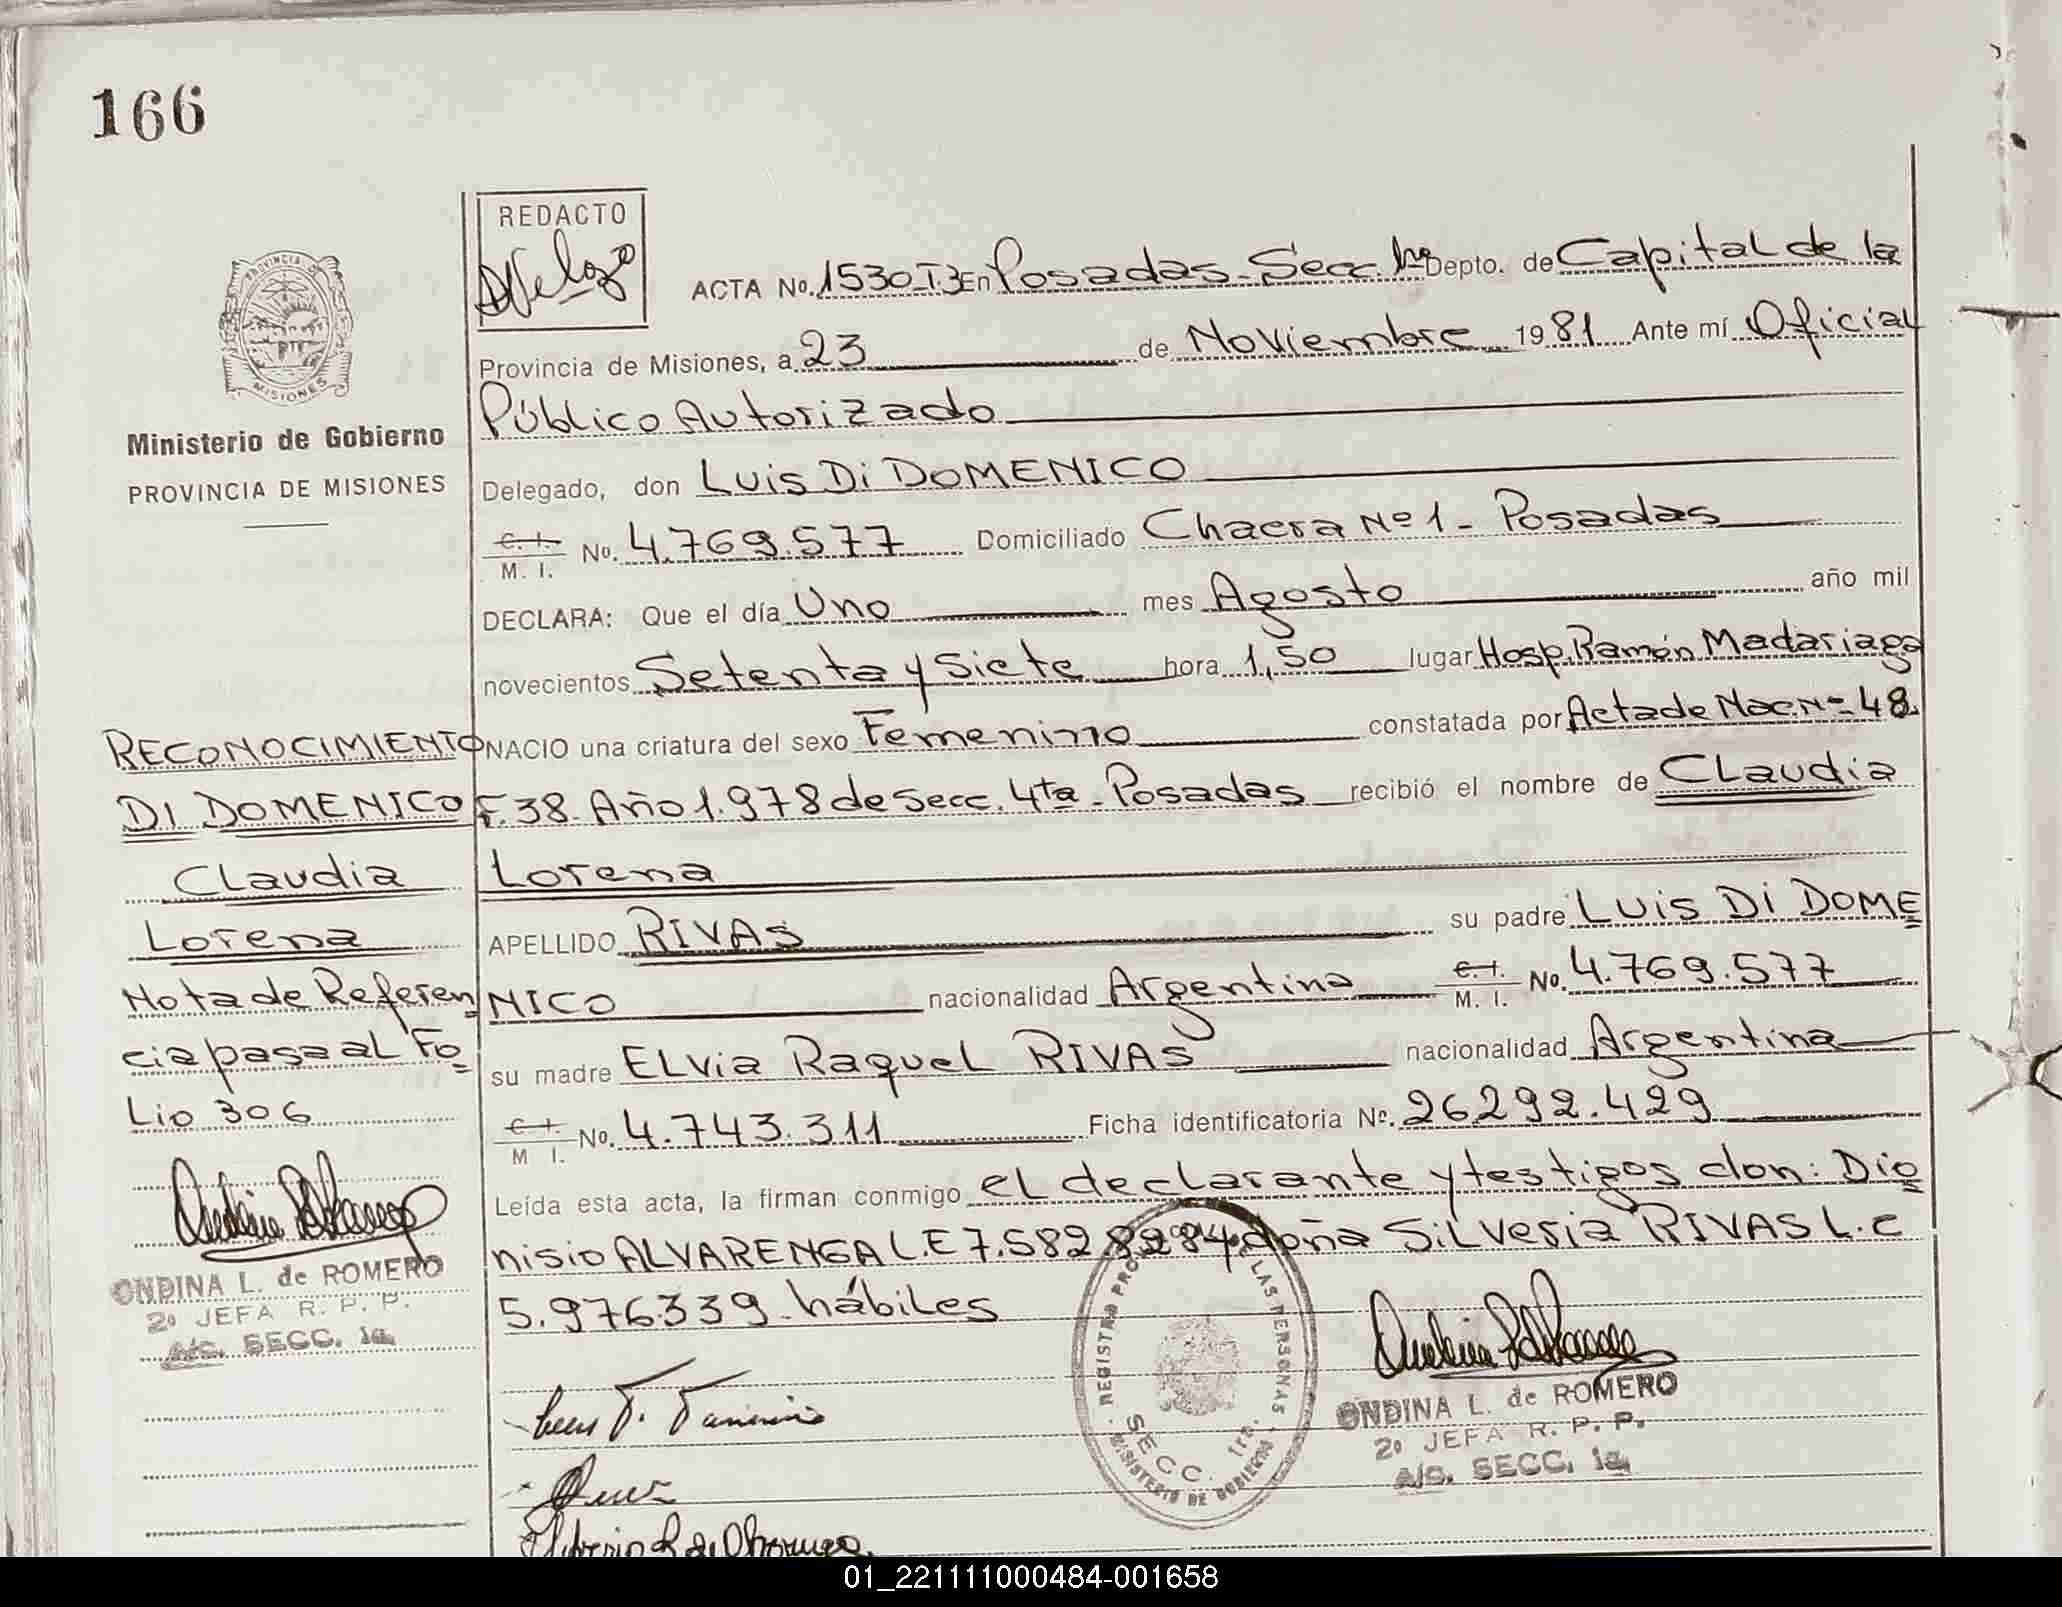 166
REDACTO
ACTA No. 1530 T.3 En Posadas - Secc. 1ra Depto. de Capital de la
Provincia de Misiones, a 23 de Noviembre 1981 Ante mí Oficial
Público Autorizado
Delegado, don Luis Di DOMENICO
C. I. M. I. No. 4.769.577 Domiciliado Chacra Nº 1 - Posadas
DECLARA: Que el día Uno mes Agosto año mil
novecientos Setenta y Siete hora 1,50 lugar Hosp. Ramón Madariaga
NACIO una criatura del sexo Femenino constatada por Acta de Nac. Nº 48
F. 38. Año 1.978 de Secc. 4ta - Posadas recibió el nombre de Claudia
Lorena
APELLIDO RIVAS su padre Luis Di DOME
NICO nacionalidad Argentina C. I. M. I. No. 4.769.577
su madre ELvia Raquel RIVAS nacionalidad Argentina
C. I. M. I. No. 4.743.311 Ficha identificatoria No. 26.292.429
Leída esta acta, la firman conmigo el declarante y testigos don: Dio
nisio ALVARENGA L.E 7.582.8284 doña Silveria RIVAS L.C
5.976.339 hábiles
PROVINCIA DE
MISIONES
Ministerio de Gobierno
PROVINCIA DE MISIONES
RECONOCIMIENTO
DI DOMENICO
Claudia
Lorena
Nota de Referen
cia pasa al Fo
Lio 306
ONDINA L. de ROMERO
2º JEFA R. P. P.
A/C. SECC. 1a.
REGISTRO PROV. DE LAS PERSONAS
SECC. 1ra.
MINISTERIO DE GOBIERNO
ONDINA L. de ROMERO
2º JEFA R. P. P.
A/C. SECC. 1a.
01_221111000484-001658